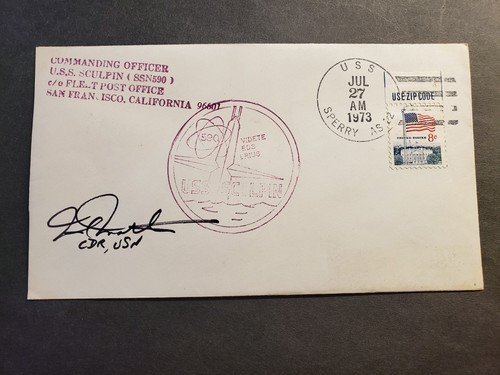 COMMANDING OFFICER
U.S.S. SCULPIN (SSN590)
c/o FLEET POST OFFICE
SAN FRAN ISCO, CALIFORNIA 96601
USS
JUL
27
AM
1973
SPERRY AS-12
USE ZIP CODE
UNITED STATES
8c
590
VIDETE
EOS
PRIUS
USS SCULPIN
CDR, USN